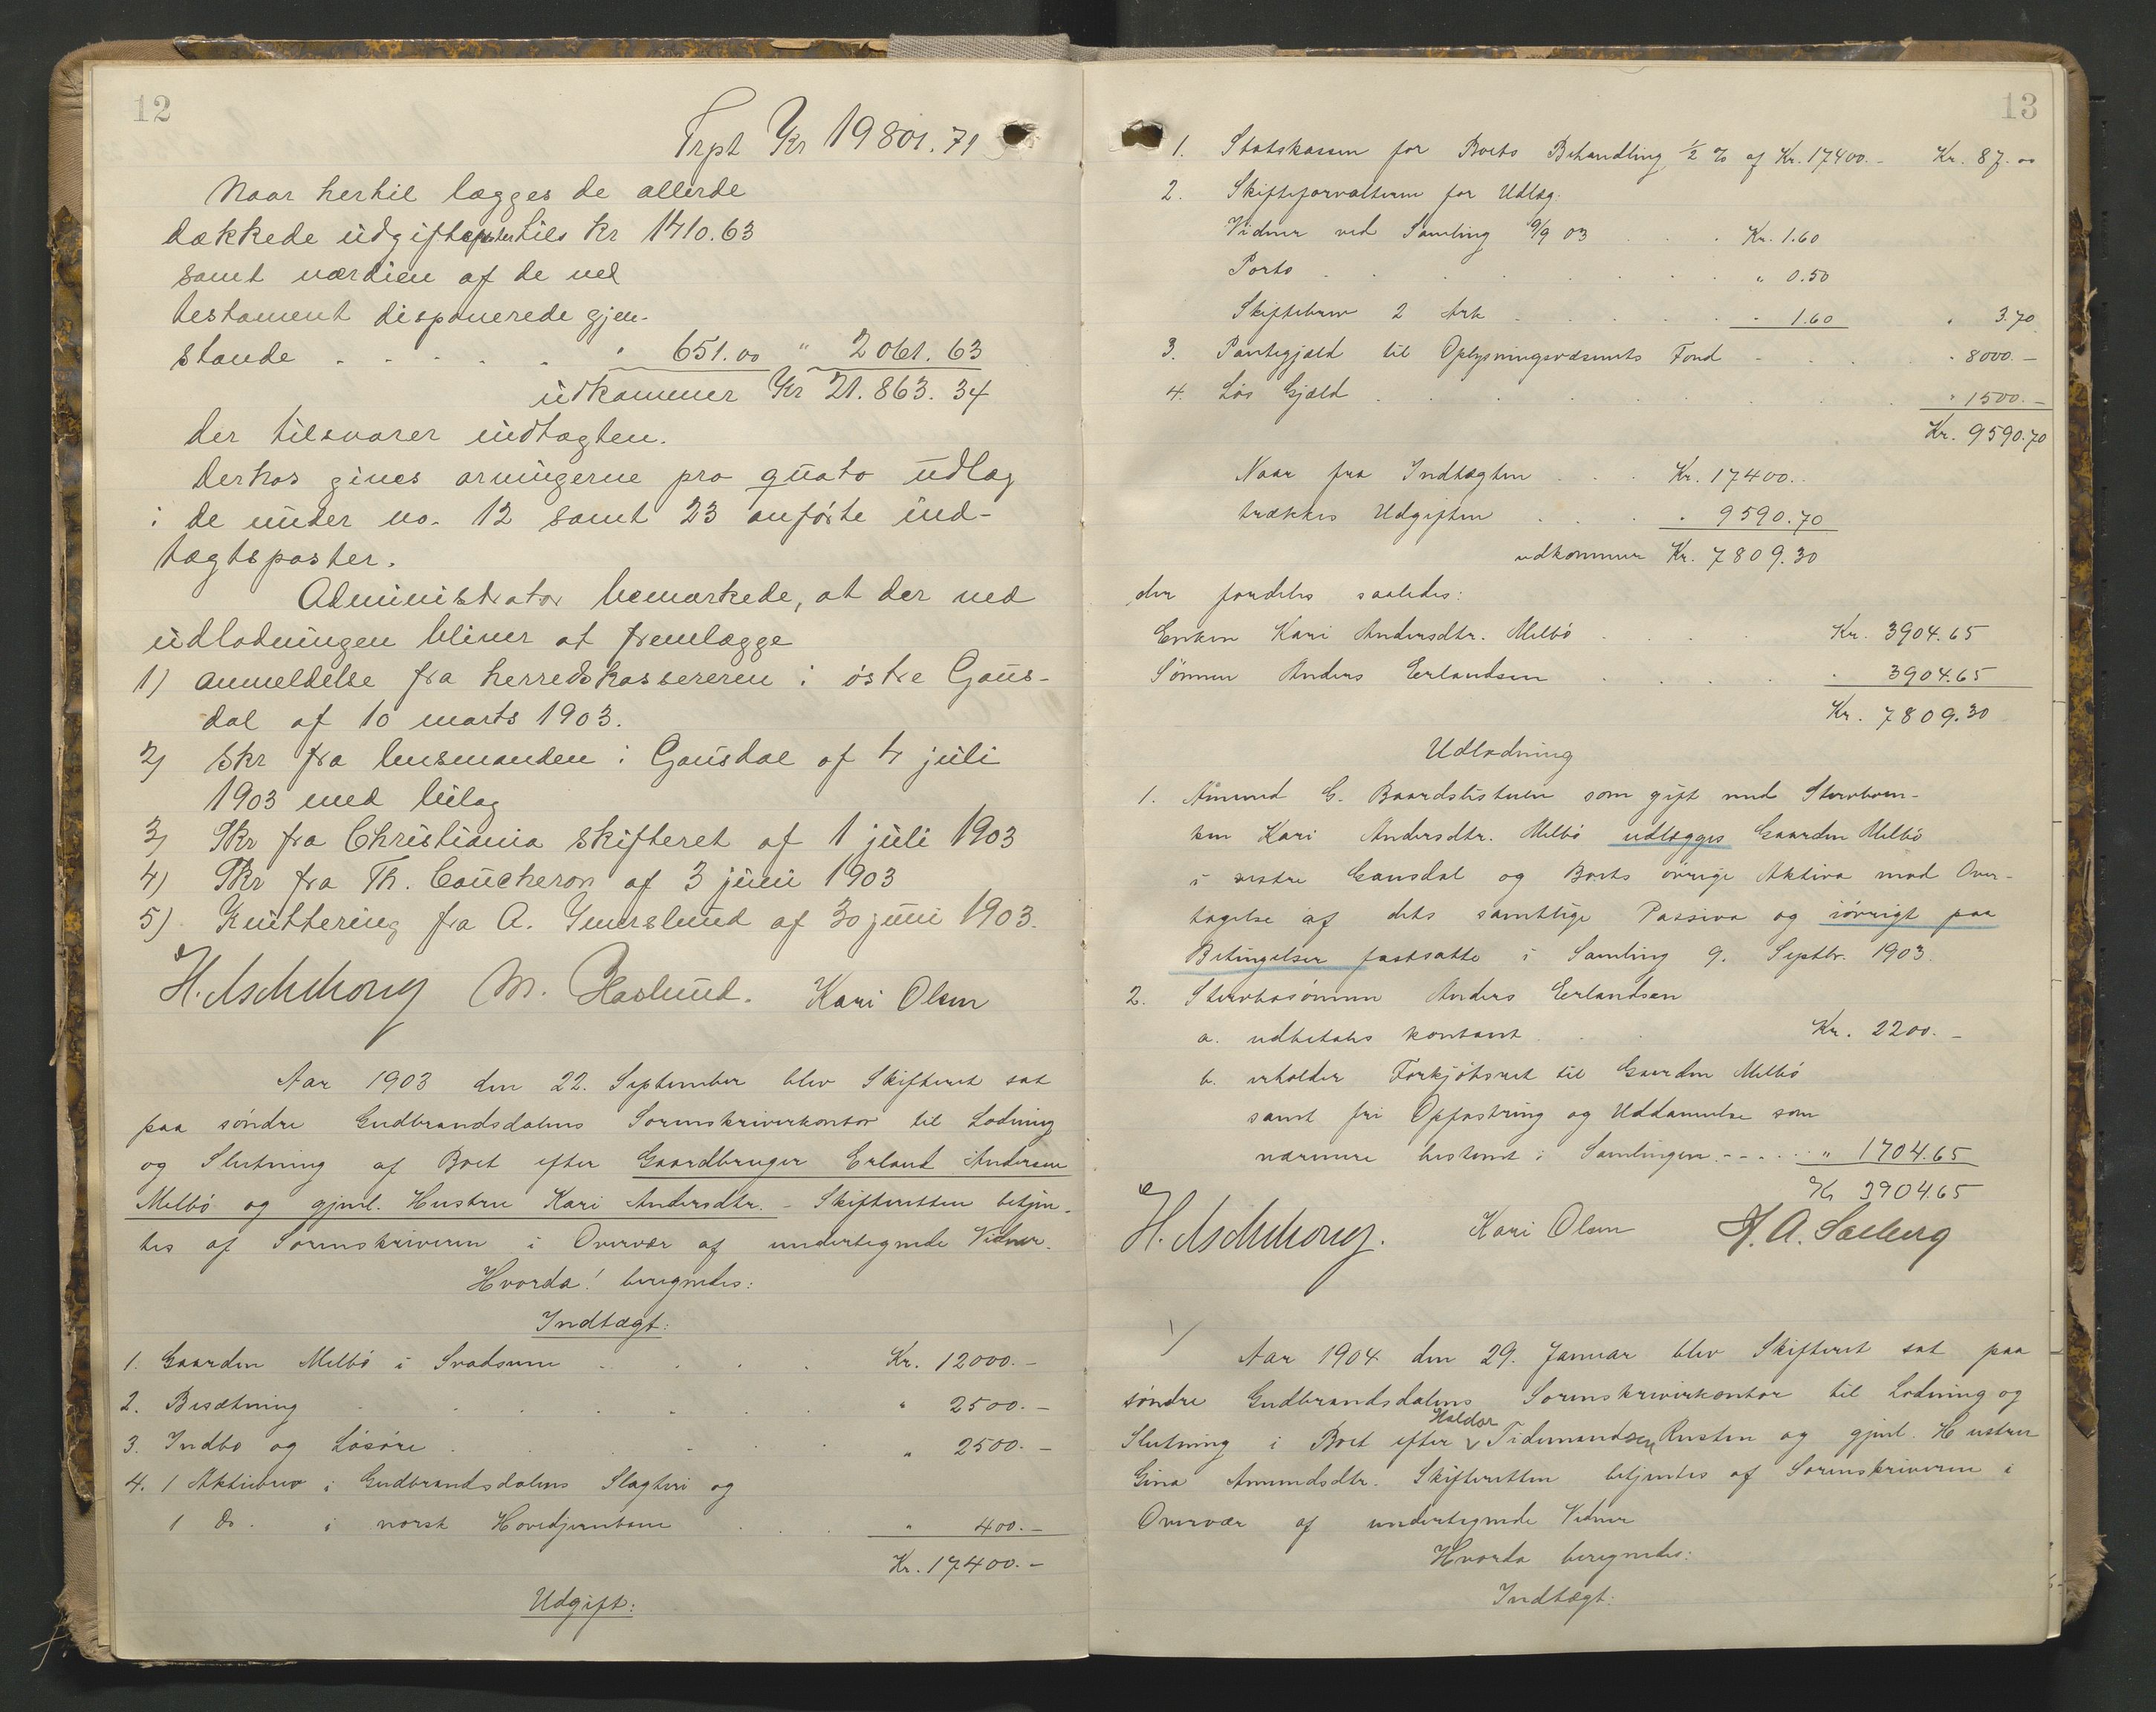 12
Trpt Kr 19801.71
Naar hertil lægges de allerde
dækkede udgiftsposter tils Kr 1410.63
samt værdien af de ved
testament disponerede gjen-
stande . . . . . " 651.00 " 2061.63
udkommer Kr 21.863.34
der tilsvarer indtægten.
Derhos gives arvingerne pro quota udlæg
i de under no. 12 samt 23 anførte ind-
tægtsposter.
Administrator bemærkede, at der ved
udlodningen bliver at fremlægge
1) anmeldelse fra herredskassereren i østre Gaus-
dal af 10 marts 1903.
2) skr fra lensmanden i Gausdal af 4 juli
1903 med bilag
3) Skr fra Christiania skifteret af 1 juli 1903
4) Skr fra Th. Coucheron af 3 juni 1903
5) Kvittering fra A. Ymerslund af 30 juni 1903.
H. Aschehoug M. Haslund. Kari Olsen
Aar 1903 den 22. September blev Skifteret sat
paa søndre Gudbrandsdalens Sorenskriverkontor til Lodning
og Slutning af Boet efter Gaardbruger Erland Andersen
Melbø og gjenl. Hustru Kari Andersdtr. – Skifteretten betjen-
tes af Sorenskriveren i Overvær af undertegnede Vidner.
Hvorda! beregnedes:
Indtægt:
1. Gaarden Melbø i Svadsum . . . . Kr. 12000.–
2. Besætning . . . . . . " 2500.–
3. Indbo og Løsøre . . . . . " 2500.–
4. 1 Aktiebrev i Gudbrandsdalens Slagteri og
1 Do. i norsk Hovedjernbane . . . " 400.–
Kr. 17400.–
Udgift:
13
1. Statskassen for Boets Behandling ½ % af Kr. 17400.– Kr. 87.00
2. Skifteforvalteren for Udlæg:
Vidner ved Samling 9/9 03 . . . Kr. 1.60
Porto . . . . . . . " 0.50
Skiftebrev 2 Ark . . . . . " 1.60 " 3.70
3. Pantegjæld til Oplysningsvæsenets Fond . . . . " 8000.–
4. Løs Gjæld . . . . . . . . . " 1500.–
Kr. 9590.70
Naar fra Indtægten . . . Kr. 17400..
trækkes Udgiften . . . . " 9590.70
udkommer Kr. 7809.30
der fordeles saaledes:
Enken Kari Andersdtr. Melbø . . . . Kr. 3904.65
Sønnen Anders Erlandsen . . . . . " 3904.65
Kr. 7809.30
Udlodning
1. Amund G. Baardslistuen som gift med Stervboen-
ken Kari Andersdtr. Melbø udlægges Gaarden Melbø
i vestre Gausdal og Boets øvrige Aktiva mod Over-
tagelse af dets samtlige Passiva og iøvrigt paa
Betingelser fastsatte i Samling 9. Septbr. 1903.
2. Stervbosønnen Anders Erlandsen
a. udbetales kontant . . . Kr. 2200.–
b. erholder Forkjøbsret til Gaarden Melbø
samt fri Opfostring og Uddannelse som
nærmere bestemt i Samlingen - - . . . " 1704.65
Kr 3904.65
H. Aschehoug. Kari Olsen
Aar 1904 den 29. Januar blev Skifteret sat paa
søndre Gudbrandsdalens Sorenskriverkontor til Lodning og
Slutning i Boet efter Haldor Tidemandsen Rusten og gjenl. Hustru
Gina Amundsdtr. Skifteretten betjentes af Sorenskriveren i
Overvær af undertegnede Vidner
Hvorda beregnedes:
Indtægt: